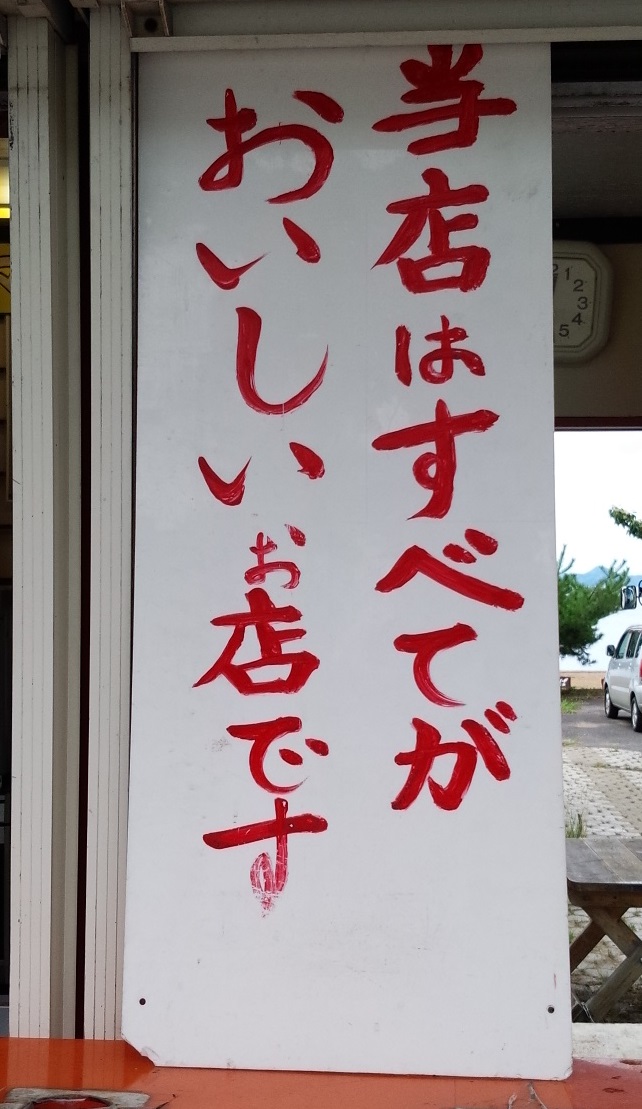 当店はすべてが
おいしいお店です
1
2
3
4
5